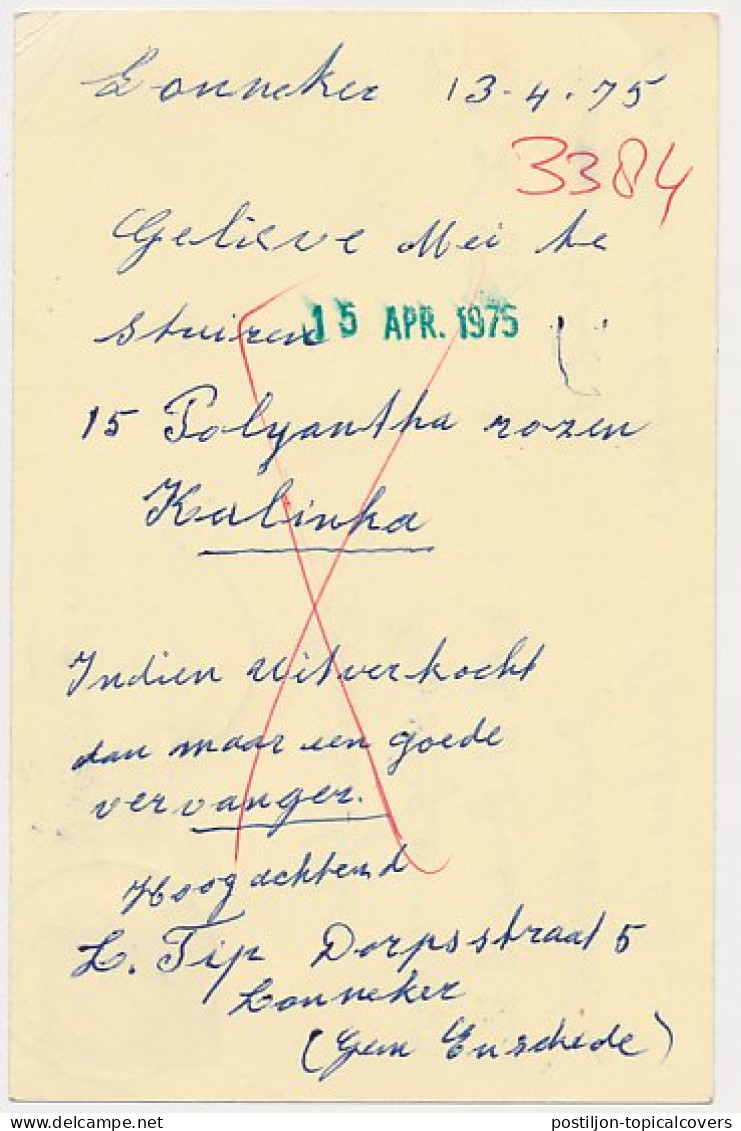 Lonneker 13-4-75
3384
Gelieve Mei te
sturen
15 APR. 1975
15 Polyantha rozen
Kalinka
Indien uitverkocht
dan maar een goede
vervanger.
Hoogachtend
L. Tip Dorpsstraat 5
Lonneker
(Gem Enschede)
postiljon-topicalcovers